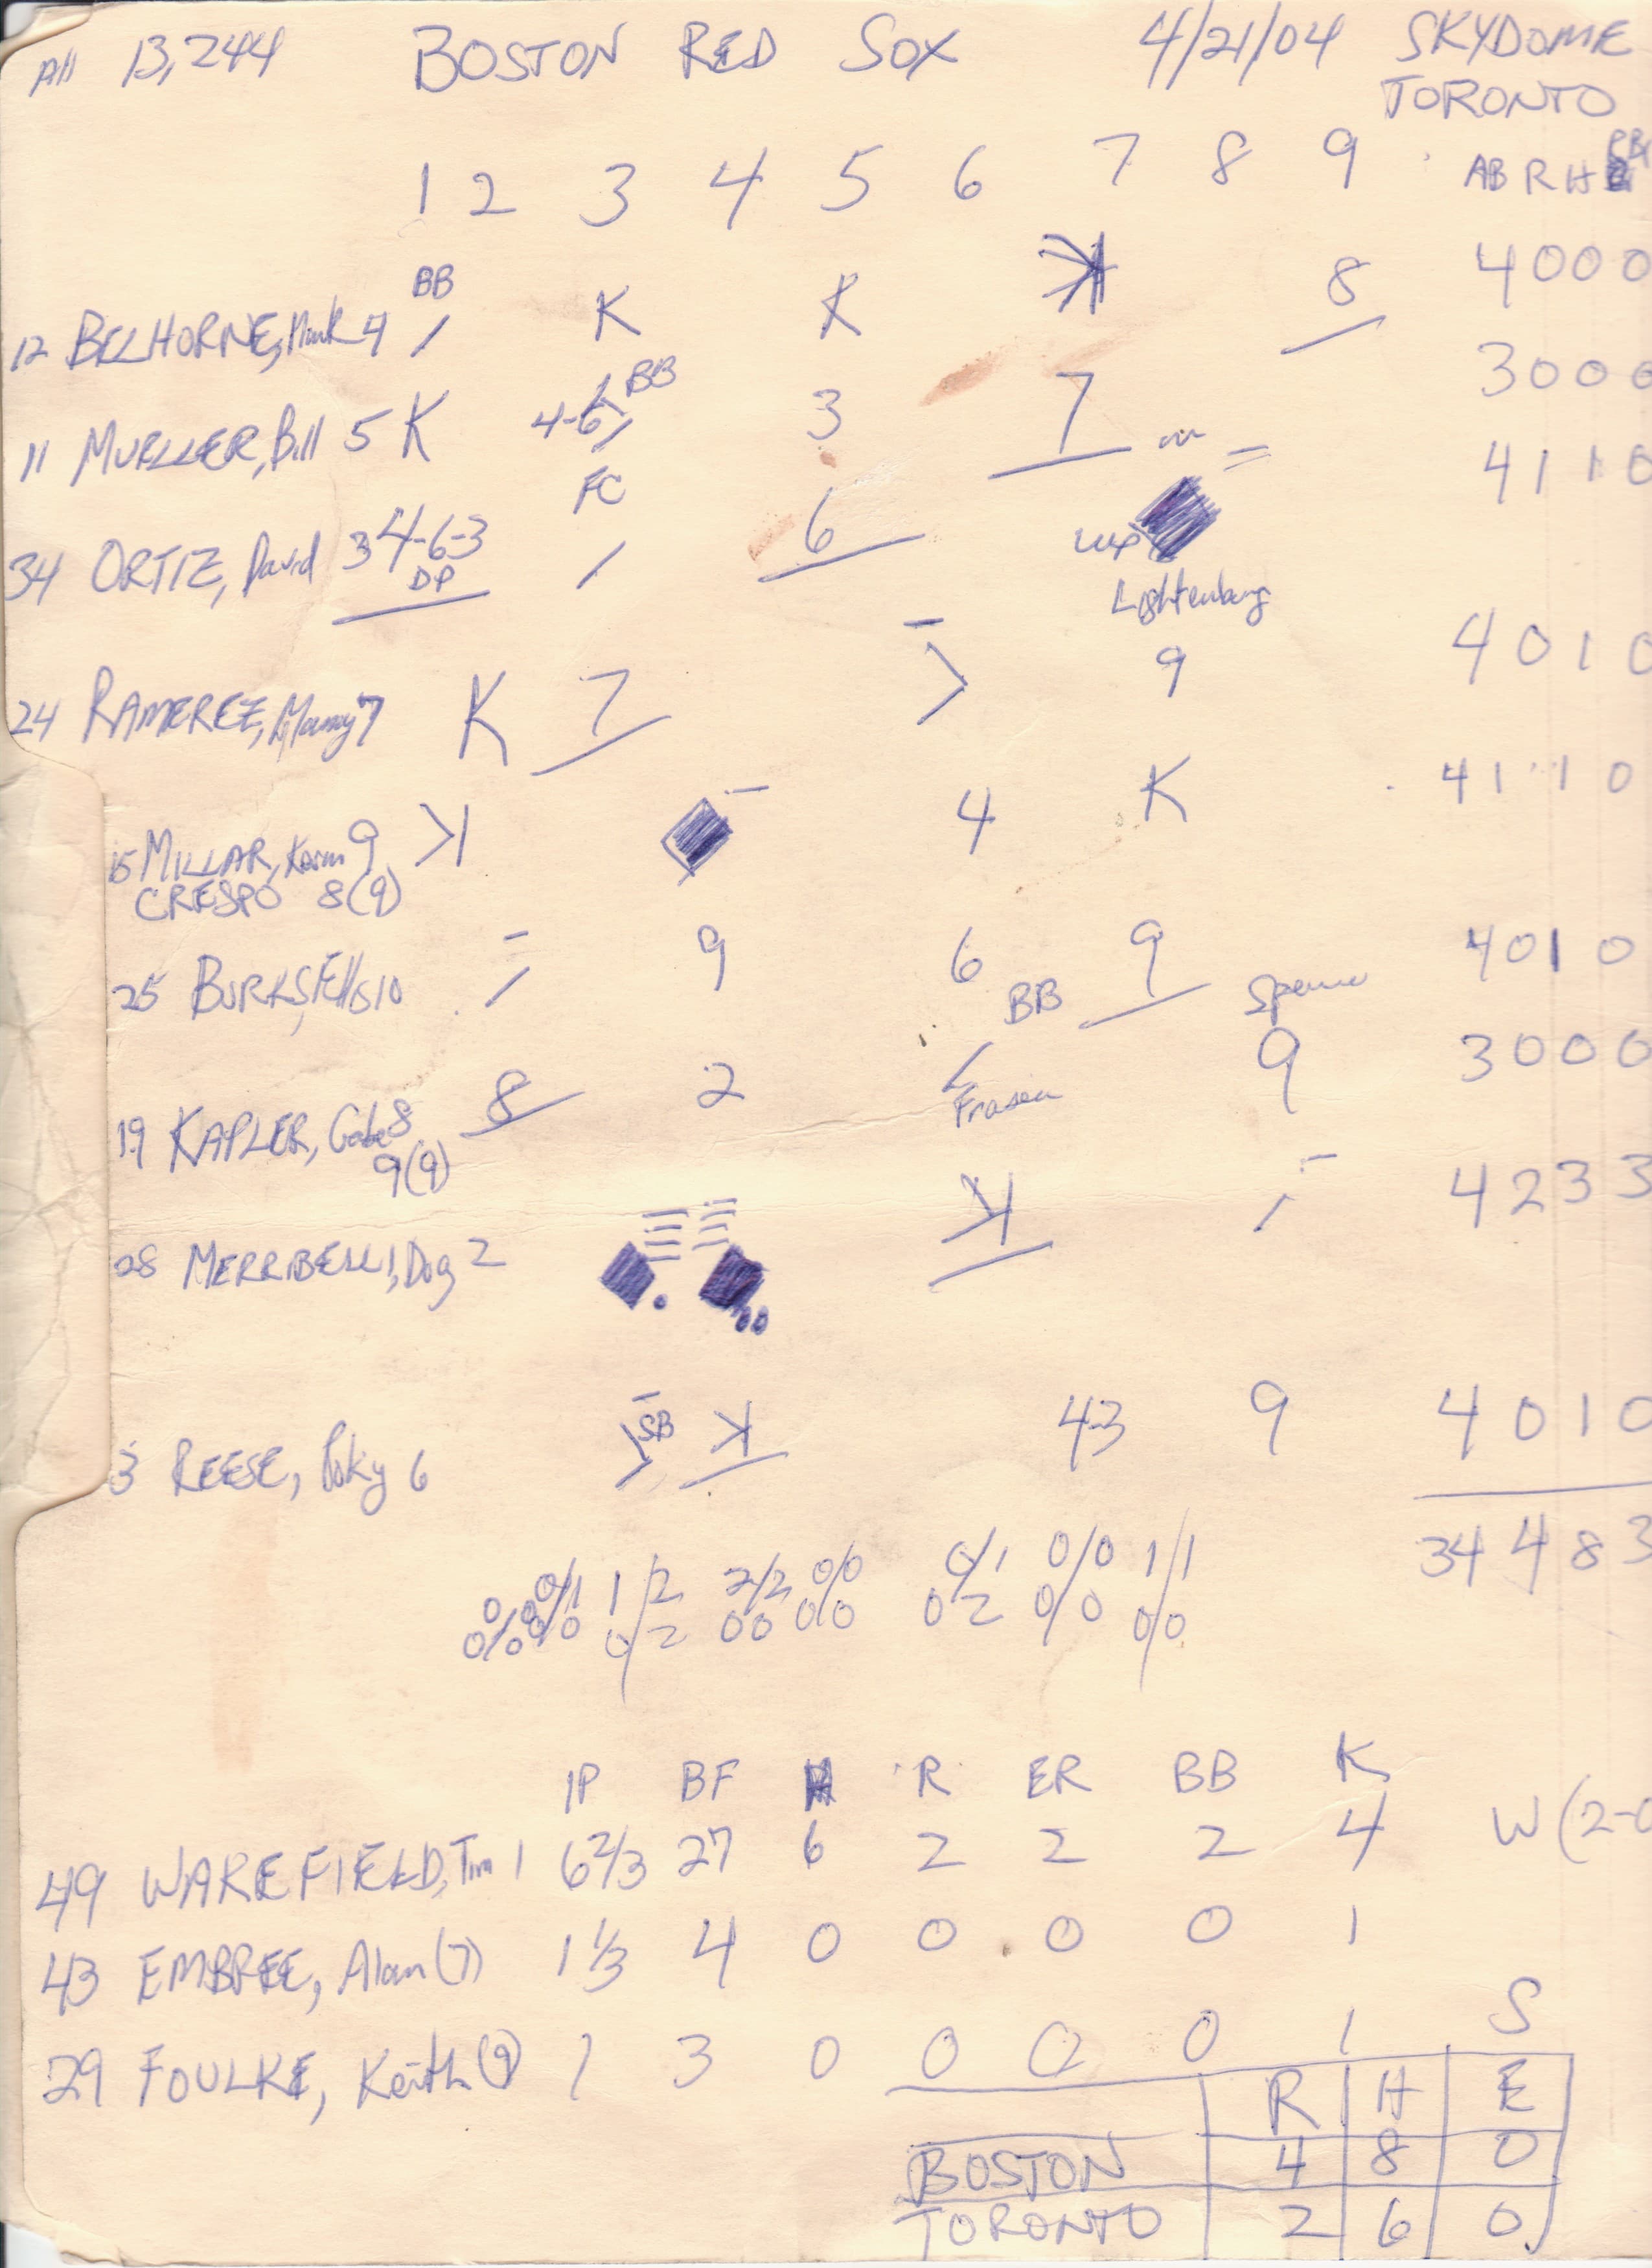 Att 13,244 BOSTON RED SOX 4/21/04 SKYDOME
TORONTO
1 2 3 4 5 6 7 8 9 AB R H
BB
12 BELHORNE, Mark 4 K K K 8 4 0 0 0
BB
11 MUELLER, Bill 5 K 4-6 3 7 3 0 0 0
FC
34 ORTIZ, David 3 4-6-3 6 4 1 1 0
DP
Lightenburg
24 RAMEREZ, Manny 7 K 7 9 4 0 1 0
15 MILLAR, Kevin 9 K 4 K 4 1 1 0
CRESPO 8(9)
25 BURKS, Ellis 10 9 6 9 4 0 1 0
BB
19 KAPLER, Gabe 8 8 2 9 3 0 0 0
Frasen
9(9)
28 MERRIBELLI, Dog 2 K 4 2 3 3
SB
3 REESE, Poky 6 K 43 9 4 0 1 0
34 4 8 3
0/0 0/1 1/2 2/2 0/0 0/1 0/0 1/1
0/0 0/0 0/2 00 0/0 0 2 0/0 0/0
IP BF H R ER BB K
49 WAKEFIELD, Tim 1 6 2/3 27 6 2 2 2 4 W (2-0
43 EMBREE, Alan (7) 1 1/3 4 0 0 0 0 1
29 FOULKE, Keith (9) 1 3 0 0 0 0 1 S
R H E
BOSTON 4 8 0
TORONTO 2 6 0